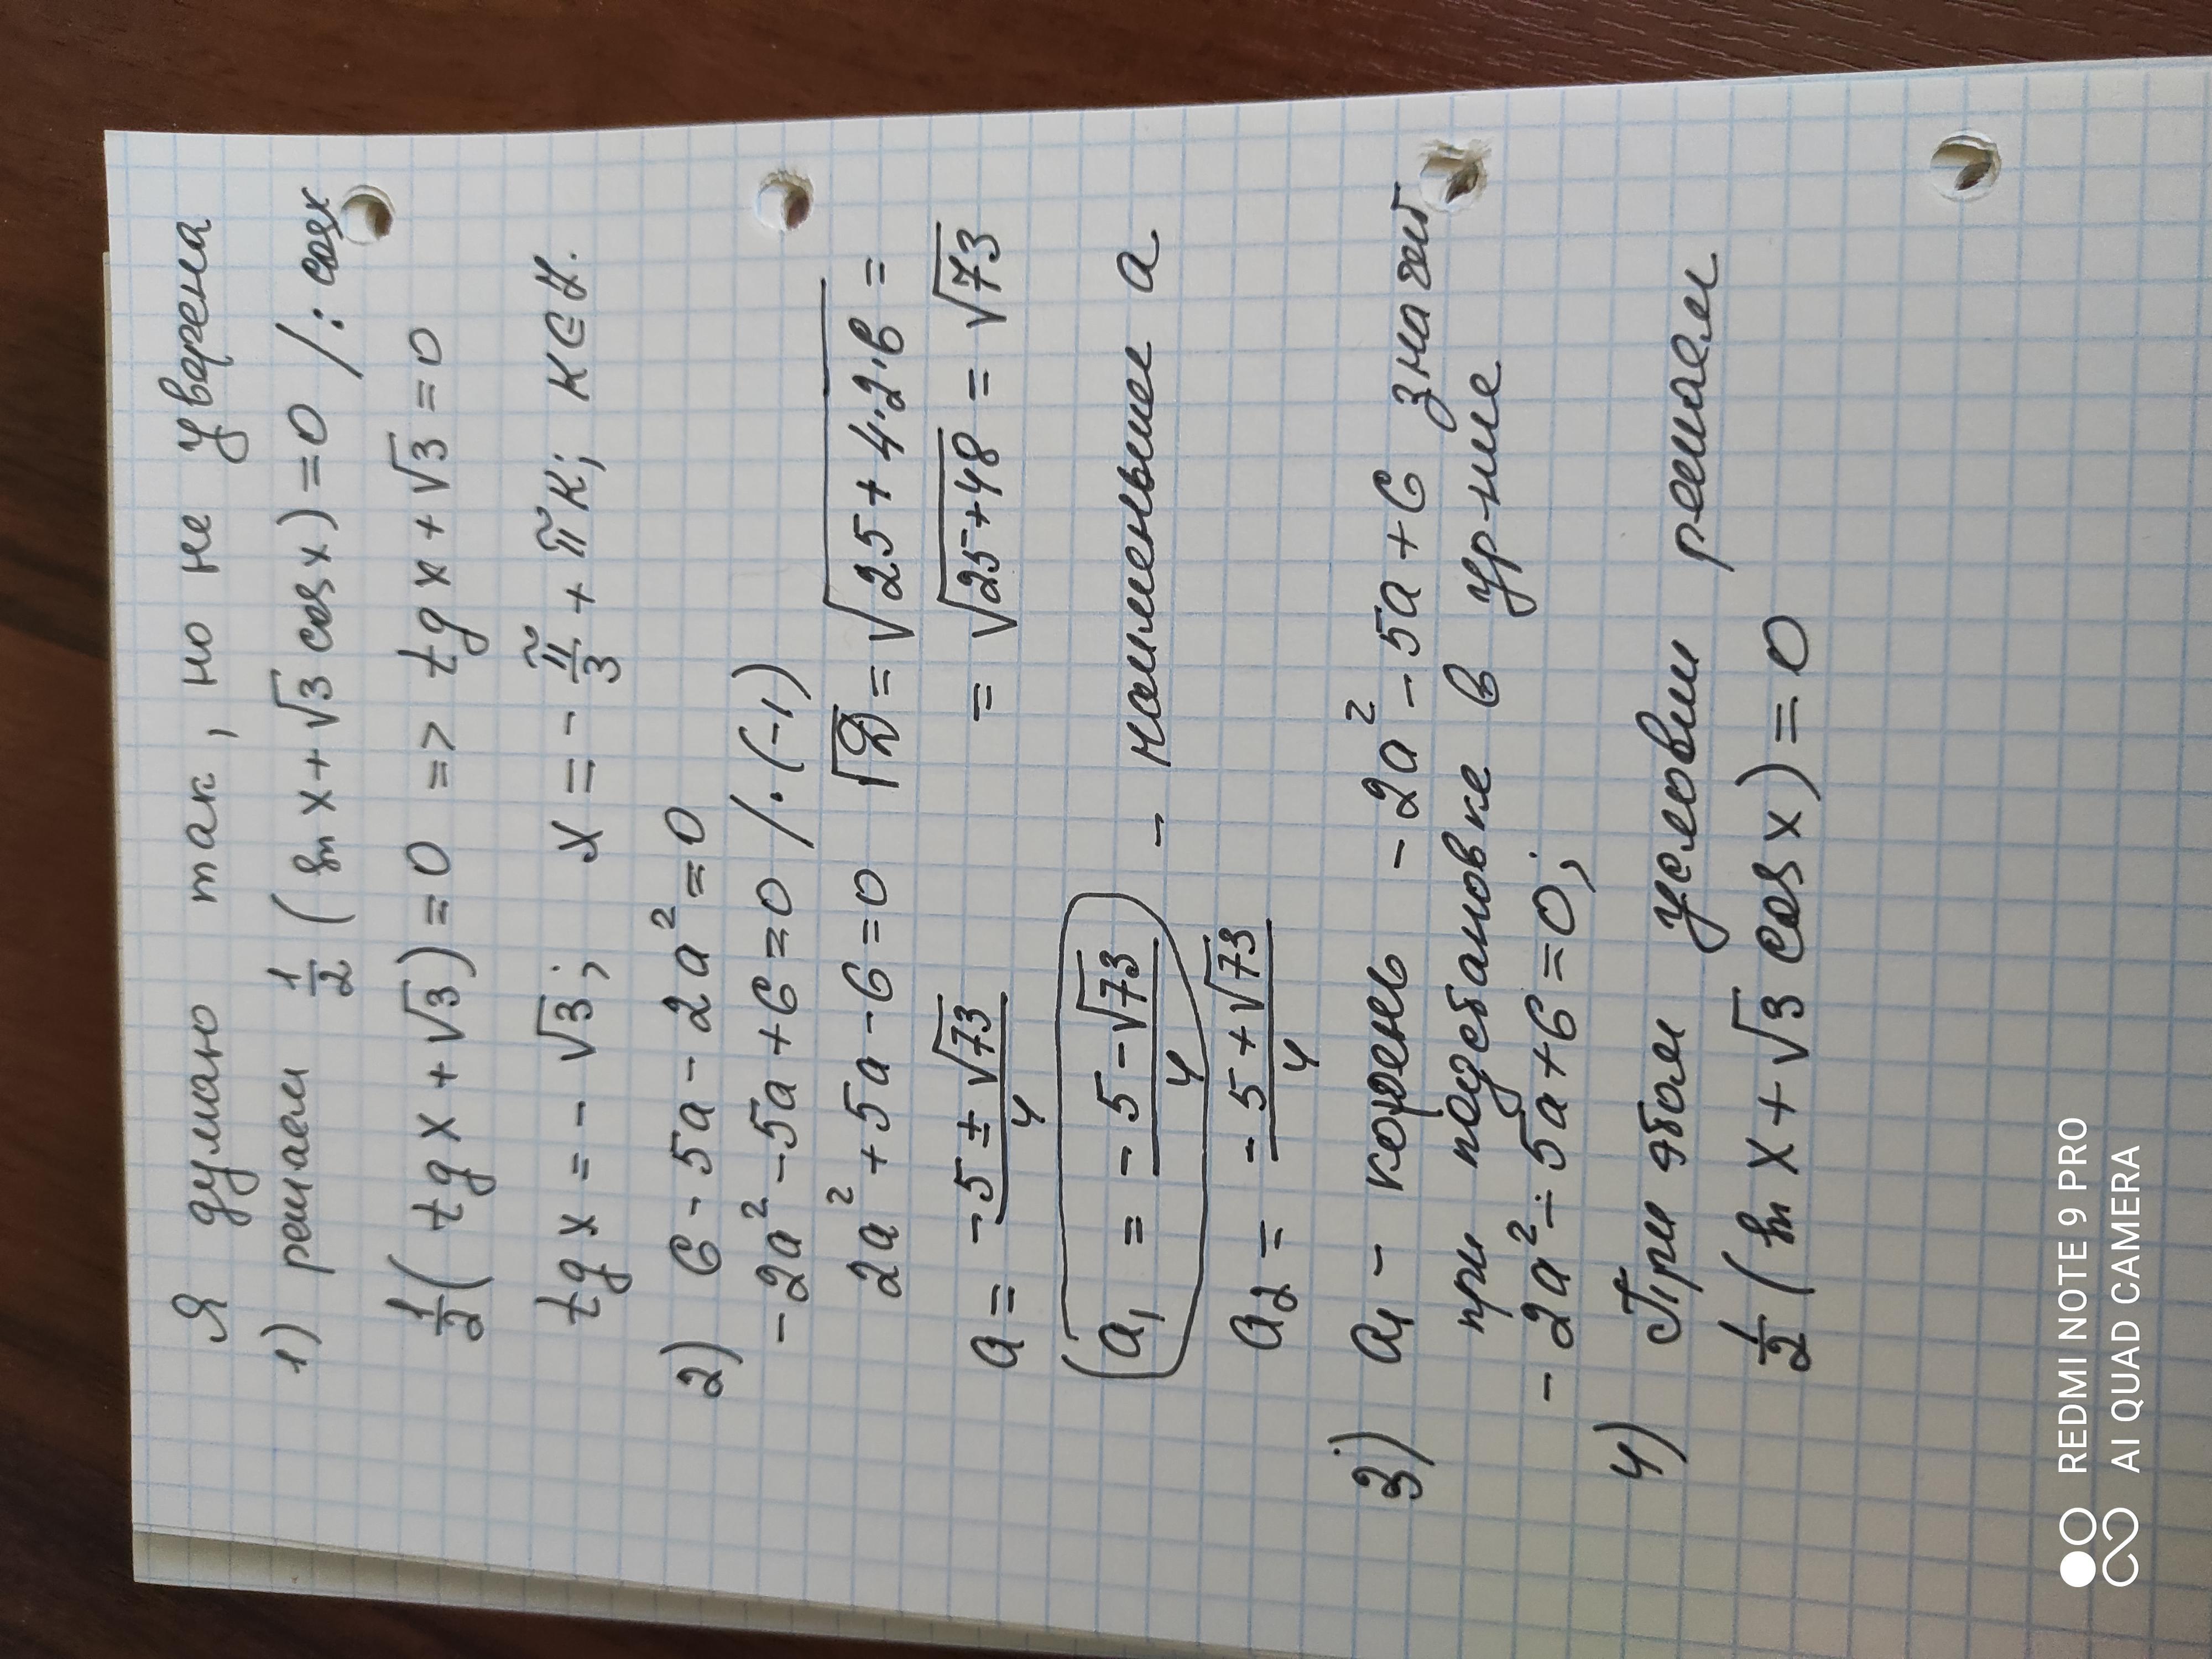 Я думаю так, но не уверена
1) решаем 1/2 (sin x + √3 cos x) = 0 /: cos x
1/2 (tg x + √3) = 0 => tg x + √3 = 0
tg x = - √3; x = - π/3 + πk; k∈Z.
2) 6 - 5a - 2a² = 0
-2a² - 5a + 6 = 0 /·(-1)
2a² + 5a - 6 = 0 √D = √25 + 4·2·6 =
a = -5 ± √73 / 4 = √25+48 = √73
a₁ = -5 - √73 / 4 - наименьшее a
a₂ = -5 + √73 / 4
3) a₁ - корень -2a² - 5a + 6 значит
при подстановке в ур-ние
-2a² - 5a + 6 = 0;
4) При этом условии решаем
1/2 (sin x + √3 cos x) = 0
REDMI NOTE 9 PRO
AI QUAD CAMERA